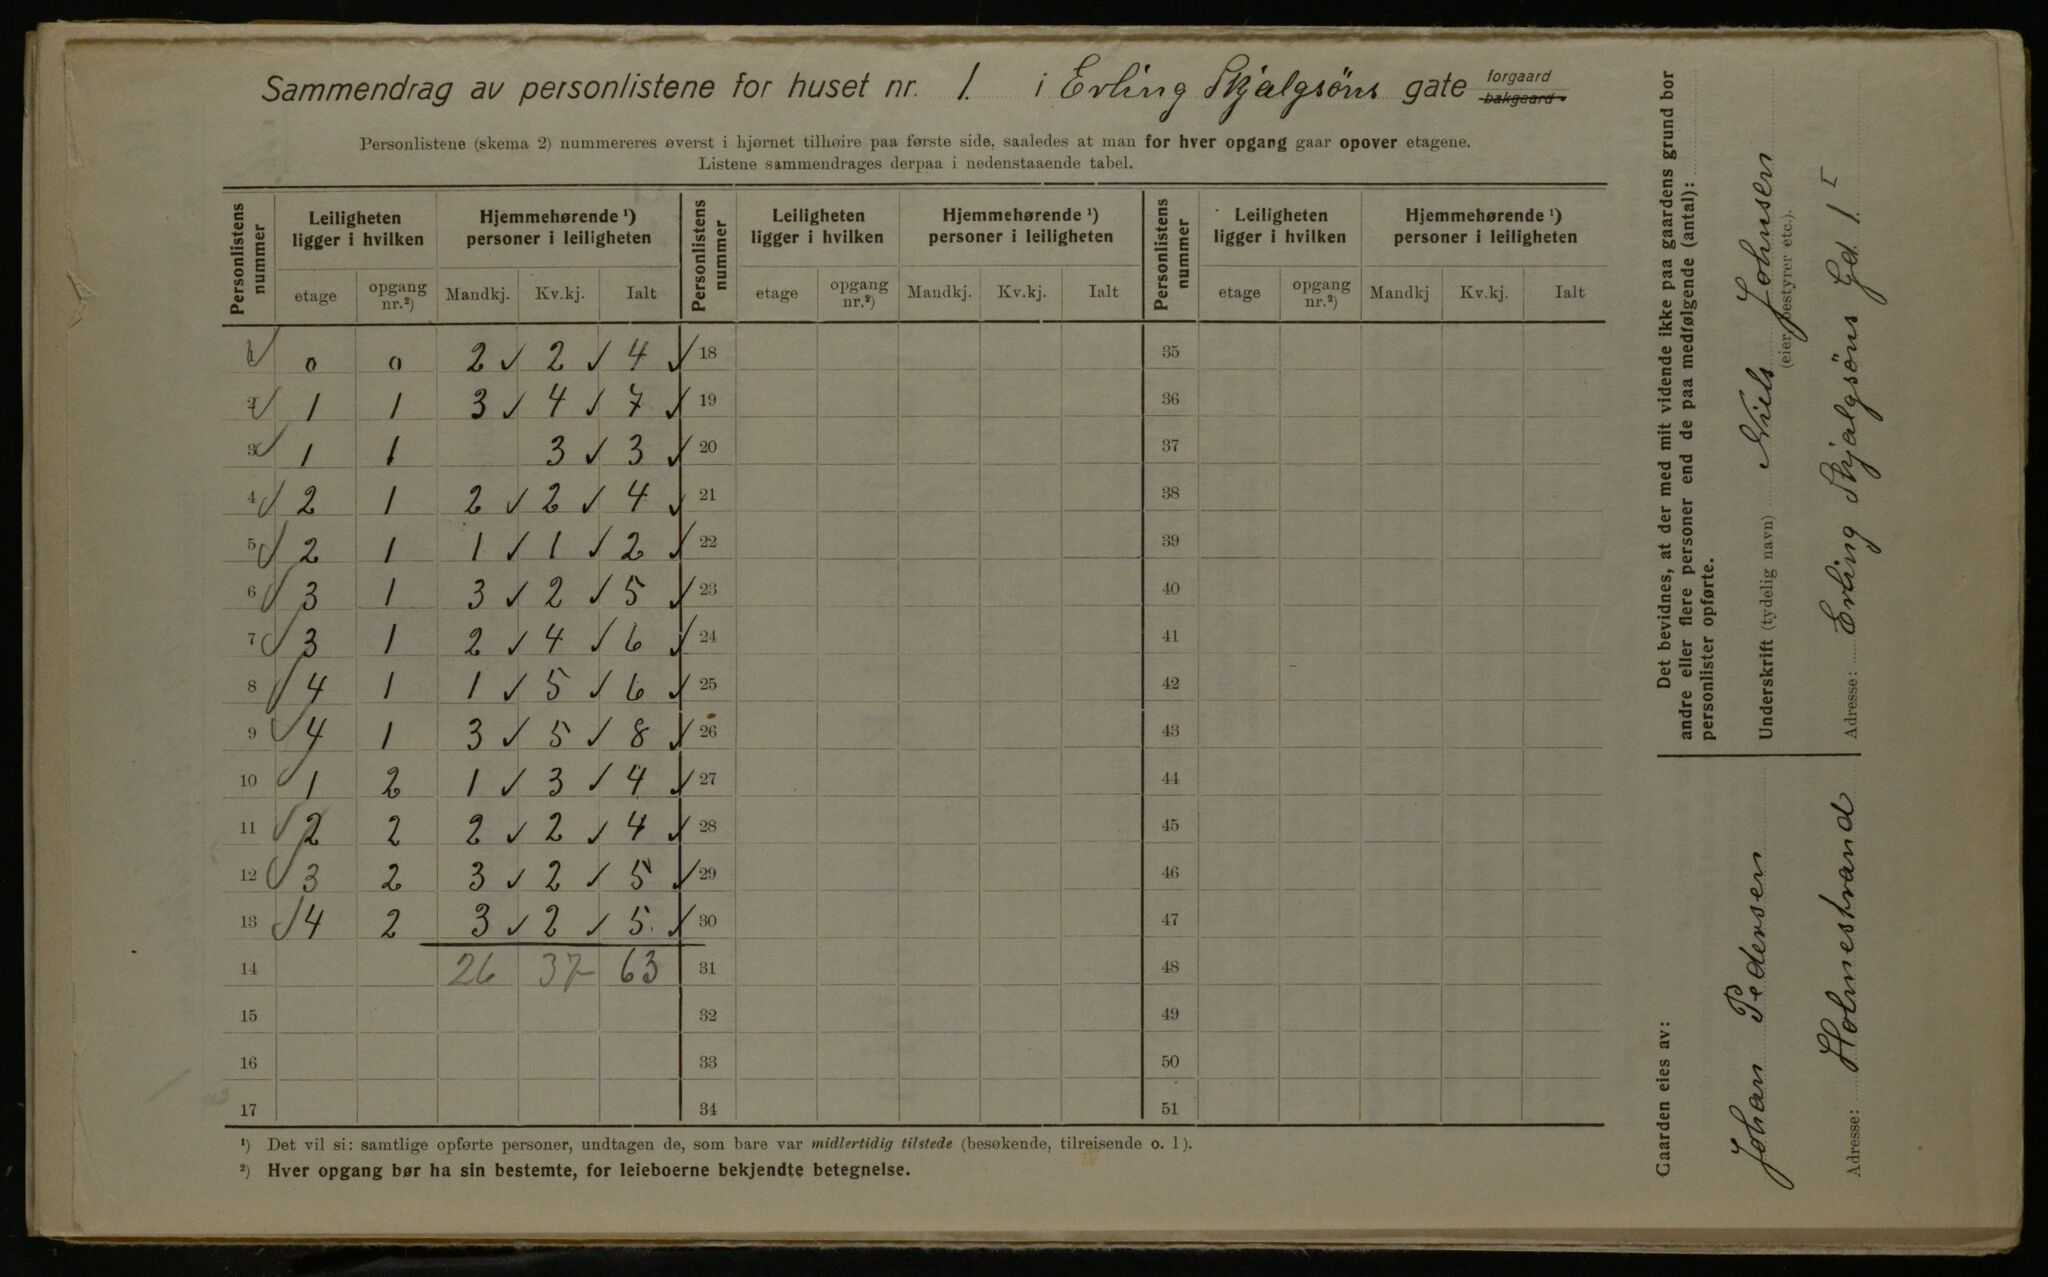 Sammendrag av personlistene for huset nr. 1. i Erling Skjalgsöns gate forgaard bakgaard
Personlistene (skema 2) nummereres øverst i hjørnet tilhøire paa første side, saaledes at man for hver opgang gaar opover etagene.
Listene sammendrages derpaa i nedenstaaende tabel.
Personlistens nummer Leiligheten ligger i hvilken Hjemmehørende ¹) personer i leiligheten Personlistens nummer Leiligheten ligger i hvilken Hjemmehørende ¹) personer i leiligheten Personlistens nummer Leiligheten ligger i hvilken Hjemmehørende ¹) personer i leiligheten
etage opgang nr.²) Mandkj. Kv.kj. Ialt etage opgang nr.²) Mandkj. Kv.kj. Ialt etage opgang nr.²) Mandkj Kv.kj. Ialt
1 0 0 2 ✓ 2 ✓ 4 ✓ 18 35
2 1 1 3 ✓ 4 ✓ 7 ✓ 19 36
3 1 1 3 ✓ 3 ✓ 20 37
4 2 1 2 ✓ 2 ✓ 4 ✓ 21 38
5 2 1 1 ✓ 1 ✓ 2 ✓ 22 39
6 3 1 3 ✓ 2 ✓ 5 ✓ 23 40
7 3 1 2 ✓ 4 ✓ 6 ✓ 24 41
8 4 1 1 ✓ 5 ✓ 6 ✓ 25 42
9 4 1 3 ✓ 5 ✓ 8 ✓ 26 43
10 1 2 1 ✓ 3 ✓ 4 ✓ 27 44
11 2 2 2 ✓ 2 ✓ 4 ✓ 28 45
12 3 2 3 ✓ 2 ✓ 5 ✓ 29 46
13 4 2 3 ✓ 2 ✓ 5. ✓ 30 47
14 26 37 63 31 48
15 32 49
16 33 50
17 34 51
¹) Det vil si: samtlige opførte personer, undtagen de, som bare var midlertidig tilstede (besøkende, tilreisende o. l).
²) Hver opgang bør ha sin bestemte, for leieboerne bekjendte betegnelse.
Det bevidnes, at der med mit vidende ikke paa gaardens grund bor
andre eller flere personer end de paa medfølgende (antal):
personlister opførte.
Underskrift (tydelig navn) Niels Johnsen
(eier, bestyrer etc.).
Adresse: Erling Skjalgsöns Gd 1. I
Gaarden eies av:
Johan Pedersen
Adresse: Holmestrand